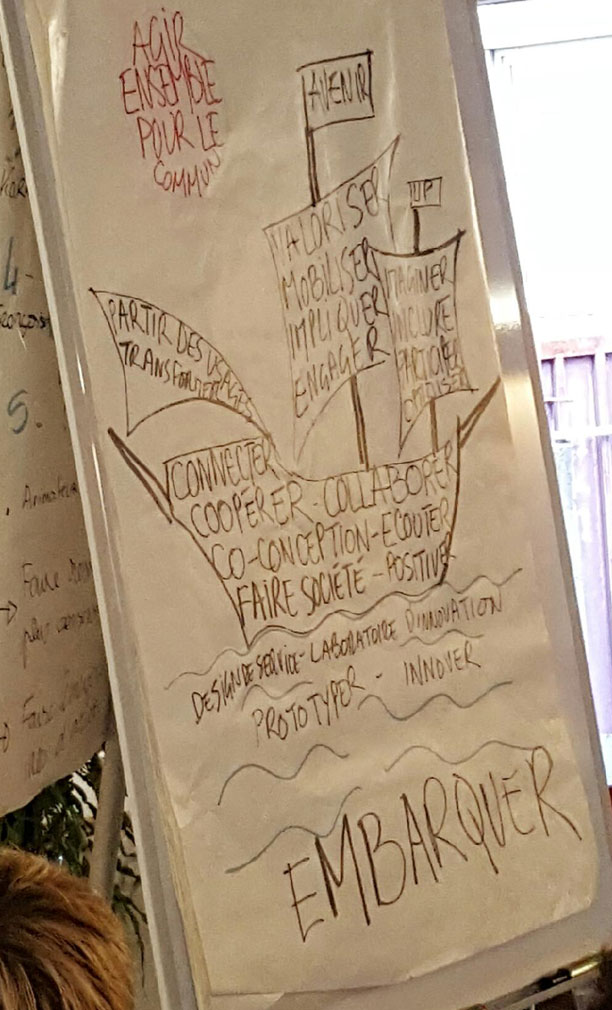 AGIR
ENSEMBLE
POUR LE
COMMUN
AVENIR
UP
VALORISER
MOBILISER
IMPLIQUER
ENGAGER
IMAGINER
INCLURE
PARTICIPER
PARTIR DES USAGES
TRANSFORMER
CONNECTER
COOPÉRER - COLLABORER
CO-CONCEPTION - ECOUTER
FAIRE SOCIÉTÉ - POSITIVER
DESIGN DE SERVICE - LABORATOIRE D'INNOVATION
PROTOTYPER - INNOVER
EMBARQUER
4-
5.
Faire